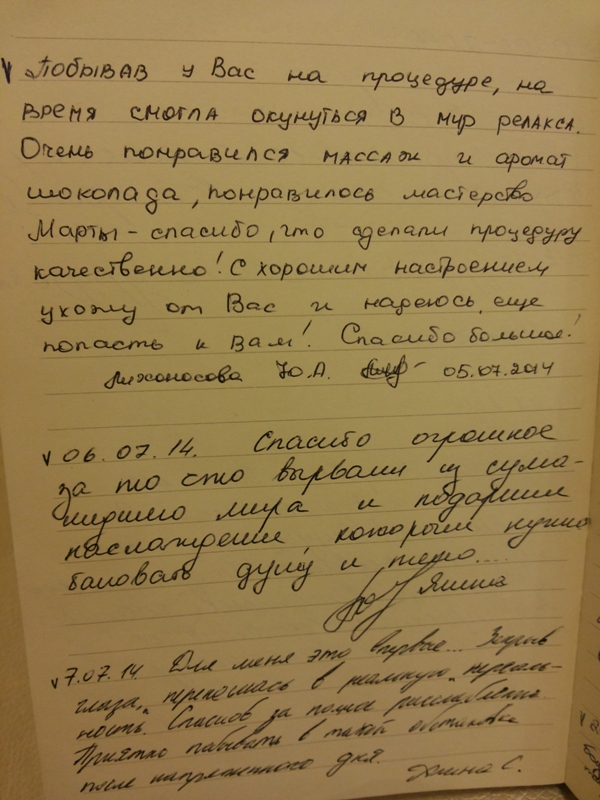 v Побывав у Вас на процедуре, на
время смогла окунуться в мир релакса.
Очень понравился массаж и аромат
шоколада, понравилось мастерство
Марты - спасибо, что сделали процедуру
качественно! С хорошим настроением
ухожу от Вас и надеюсь еще
попасть к Вам! Спасибо большое!
Лихоносова Ю.А. 05.07.2014
v 06.07.14. Спасибо огромное
за то что вырвали из сума-
шедшего мира и подарили
наслаждение, которым нужно
баловать душу и тело....
Яшина
v 7.07.14 Для меня это впервые... Закрыв
глаза, перенеслась в реальную "нереаль-
ность. Спасибо за полное расслабление.
Приятно побывать в такой обстановке
после напряженного дня.
С.